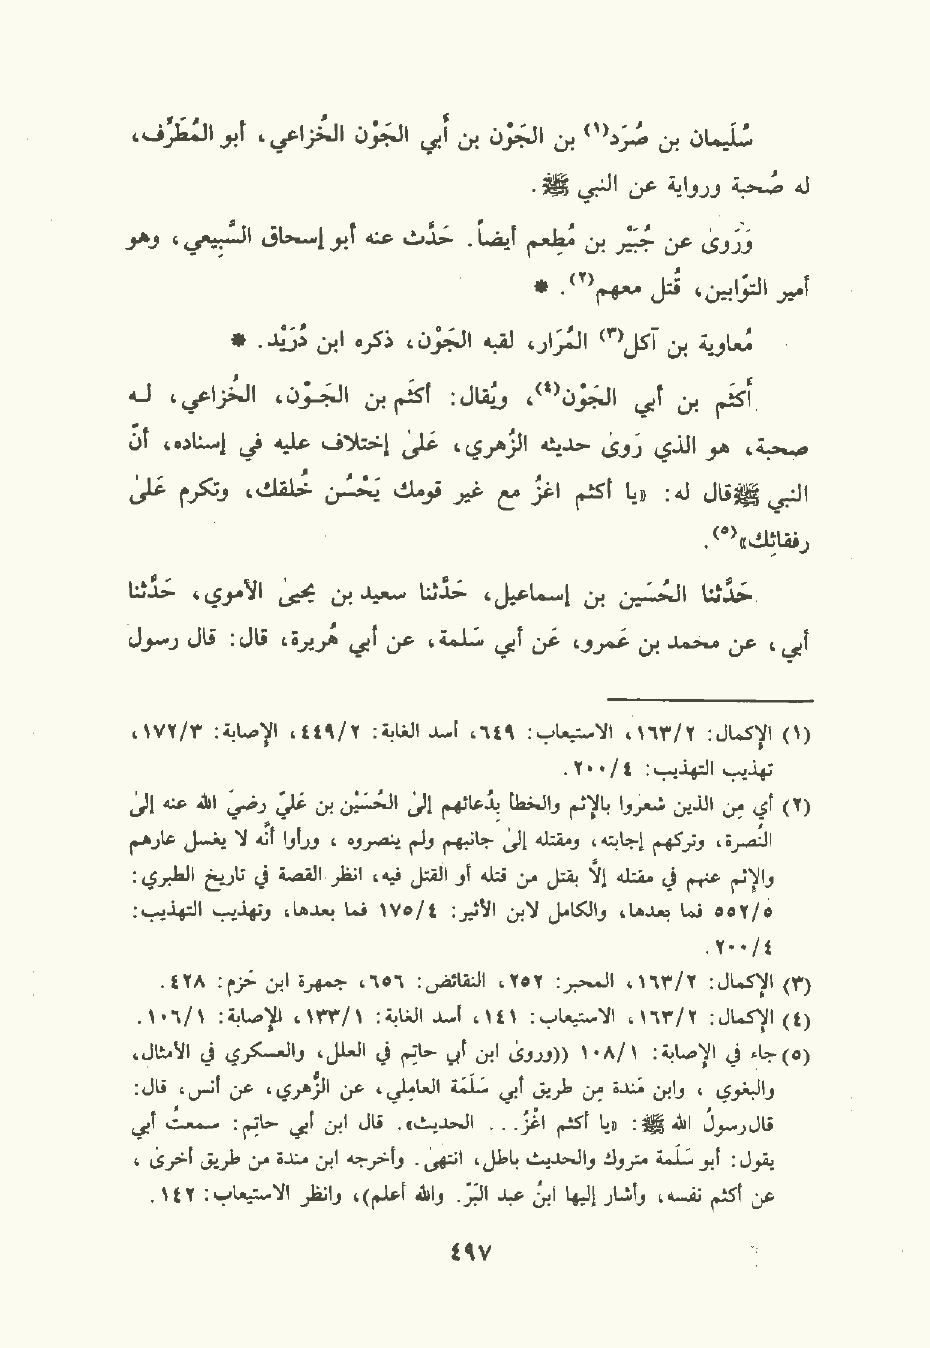 سُلَيمان بن صُرَد(١) بن الجَوْن بن أبي الجَوْن الخُزاعي، أبو المُطَرِّف،
له صُحبة ورواية عن النبي ﷺ.
وَرَوىٰ عن جُبَيْر بن مُطعِم أيضاً. حَدّث عنه أبو إسحاق السَّبِيعي، وهو
أمير التوّابين، قُتل معهم(٢). *
مُعاوية بن آكل(٣) المُرَار، لقبه الجَوْن، ذكره ابن دُرَيْد. *
أكثَم بن أبي الجَوْن(٤)، ويُقال: أكثَم بن الجَـوْن، الخُزاعي، لـه
صحبة، هو الذي رَوىٰ حديثه الزُهري، علىٰ إختلاف عليه في إسناده، أنّ
النبي ﷺ قال له: «يا أكثم اغزُ مع غير قومك يَحْسُن خُلقك، وتكرُم علىٰ
رفقائِك»(٥).
حَدّثنا الحُسَين بن إسماعيل، حَدّثنا سعيد بن يحيىٰ الأموي، حَدّثنا
أبي، عن محمد بن عَمرو، عَن أبي سَلمة، عن أبي هُريرة، قال: قال رسول
(١) الإكمال: ١٦٣/٢، الاستيعاب: ٦٤٩، أسد الغابة: ٤٤٩/٢، الإصابة: ١٧٢/٣،
تهذيب التهذيب: ٢٠٠/٤.
(٢) أي مِن الذين شعروا بالإثم والخطأ بِدُعائهم إلىٰ الحُسَيْن بن عَليّ رضيَ الله عنه إلىٰ
النُصرة، وتركهم إجابته، ومقتله إلىٰ جانبهم ولم ينصروه ، ورأوا أنّه لا يغسل عارهم
والإثم عنهم في مقتله إلّا بقتل من قتله أو القتل فيه، انظر القصة في تاريخ الطبري:
٥٥٢/٥ فما بعدها، والكامل لابن الأثير: ١٧٥/٤ فما بعدها، وتهذيب التهذيب:
٢٠٠/٤.
(٣) الإكمال: ١٦٣/٢، المحبر: ٢٥٢، النقائض: ٦٥٦، جمهرة ابن حَزم: ٤٢٨.
(٤) الإكمال: ١٦٣/٢، الاستيعاب: ١٤١، أسد الغابة: ١٣٣/١، الإصابة: ١٠٦/١.
(٥) جاء في الإصابة: ١٠٨/١ ((وروىٰ ابن أبي حاتِم في العلل، والعسكري في الأمثال،
والبغوي ، وابن مَندة مِن طريق أبي سَلَمة العامِلي، عن الزُهري، عن أنس، قال:
قال رسولُ الله ﷺ: «يا أكثم اغزُ... الحديث». قال ابن أبي حاتِم: سمعتُ أبي
يقول: أبو سَلَمة متروك والحديث باطل، انتهىٰ. وأخرجه ابن مندة من طريق أخرىٰ ،
عن أكثم نفسه، وأشار إليها ابنُ عبد البَرّ. والله أعلم)، وانظر الاستيعاب: ١٤٢.
٤٩٧